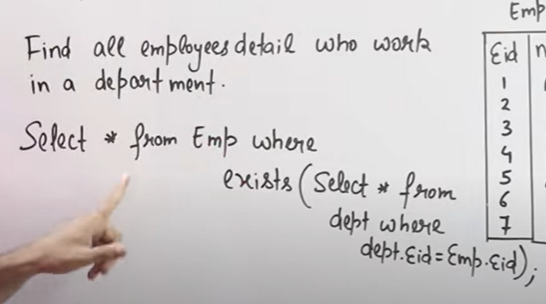 Emp
Find all employees detail who work
in a department.
Select * from Emp where
exists (Select * from
dept where
dept.Eid = Emp.Eid);
Eid
1
2
3
4
5
6
7